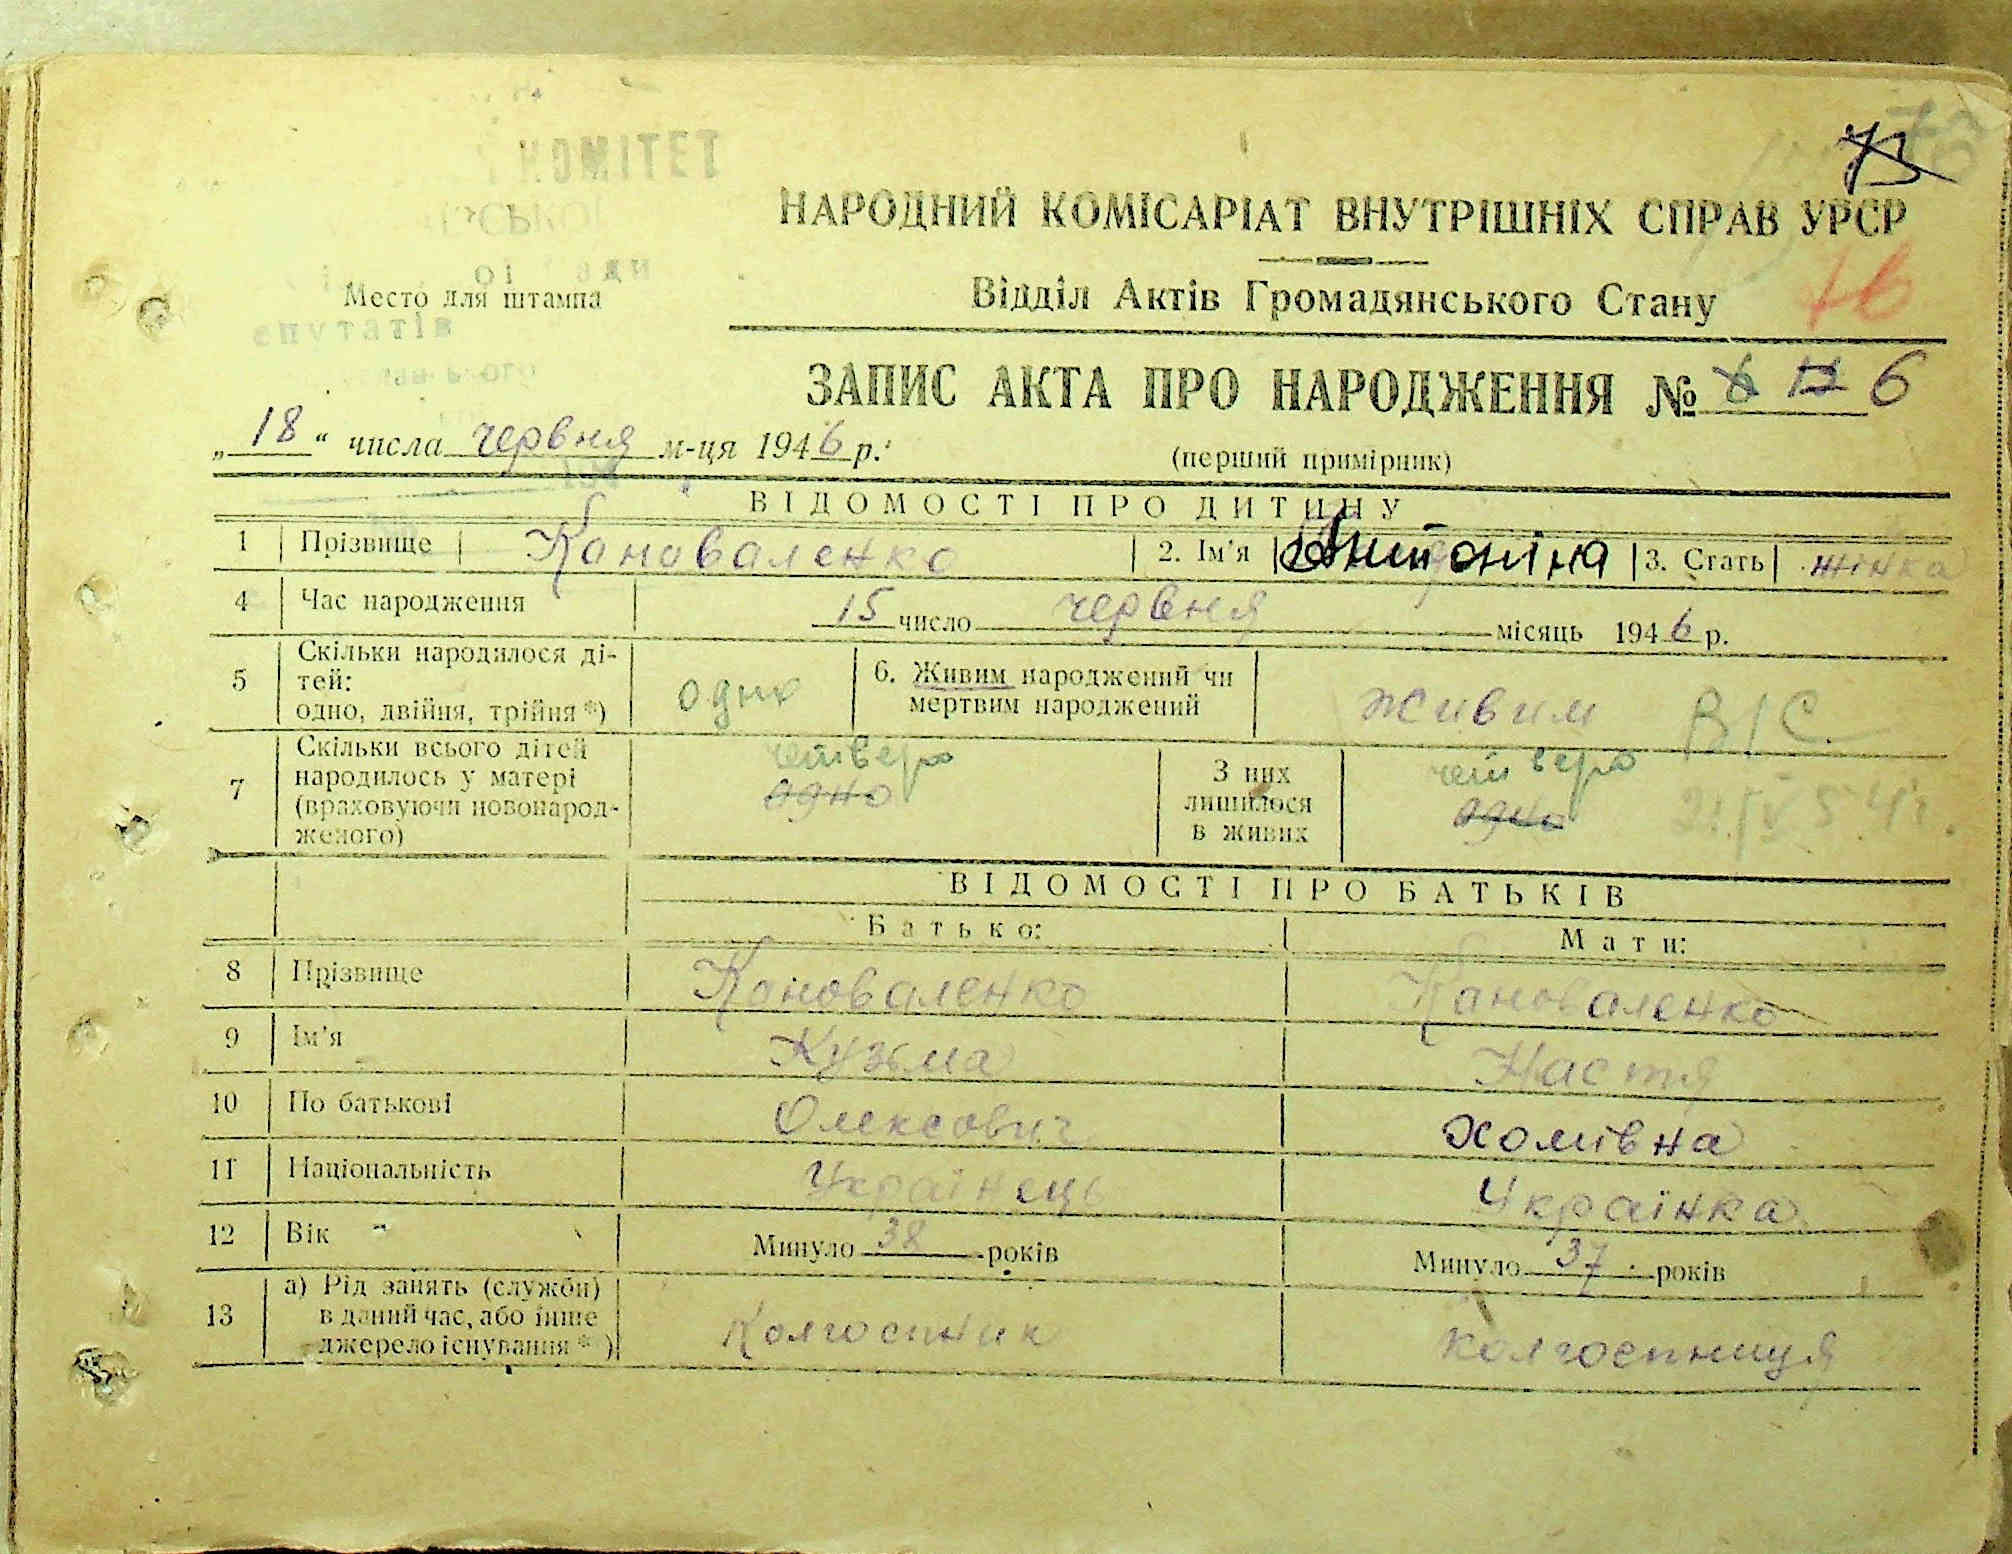 73
НАРОДНИЙ КОМІСАРІАТ ВНУТРІШНІХ СПРАВ УРСР
КОМІТЕТ
Место для штампа
Відділ Актів Громадянського Стану
16
епутатів
ЗАПИС АКТА ПРО НАРОДЖЕННЯ № 6
„18“ числа червня м-ця 1946 р.
(перший примірник)
ВІДОМОСТІ ПРО ДИТИНУ
1 Прізвище Коноваленко 2. Ім'я Антоніна 3. Стать жінка
4 Час народження 15 число червня місяць 1946 р.
5 Скільки народилося ді-
тей:
одно, двійня, трійня *) одно 6. Живим народжений чи
мертвим народжений живим В/С
7 Скільки всього дітей
народилось у матері
(враховуючи новонарод-
женого) четверо одно
З них
лишилося
в живих четверо одно
21/IV 54 г.
ВІДОМОСТІ ПРО БАТЬКІВ
Батько: Мати:
8 Прізвище Коноваленко Кановаленко
9 Ім'я Кузьма Настя
10 По батькові Олексович Хомівна
11 Національність Українець Українка
12 Вік Минуло 38 років Минуло 37 років
13 а) Рід занять (служби)
в даний час, або інше
джерело існування *) Колгоспник колгоспниця